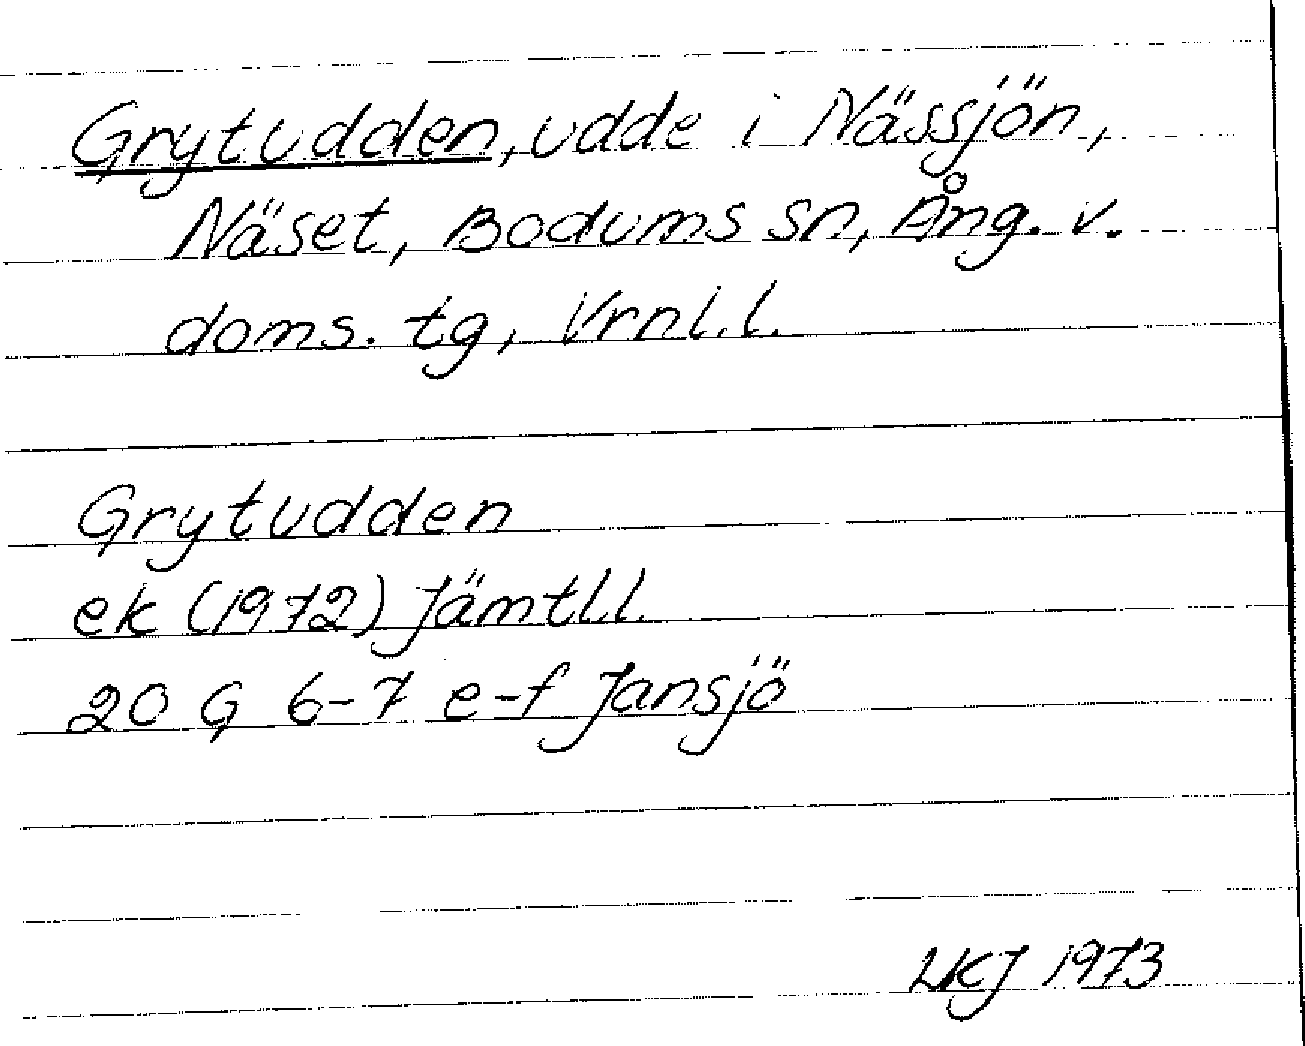 Grytudden, udde i Nässjön,
Näset, Bodums sn, Ång. v.
doms. tg, Vrnl. l.
Grytudden
ek (1972) Jämtl l.
20 G 6-7 e-f Jansjö
LKJ 1973